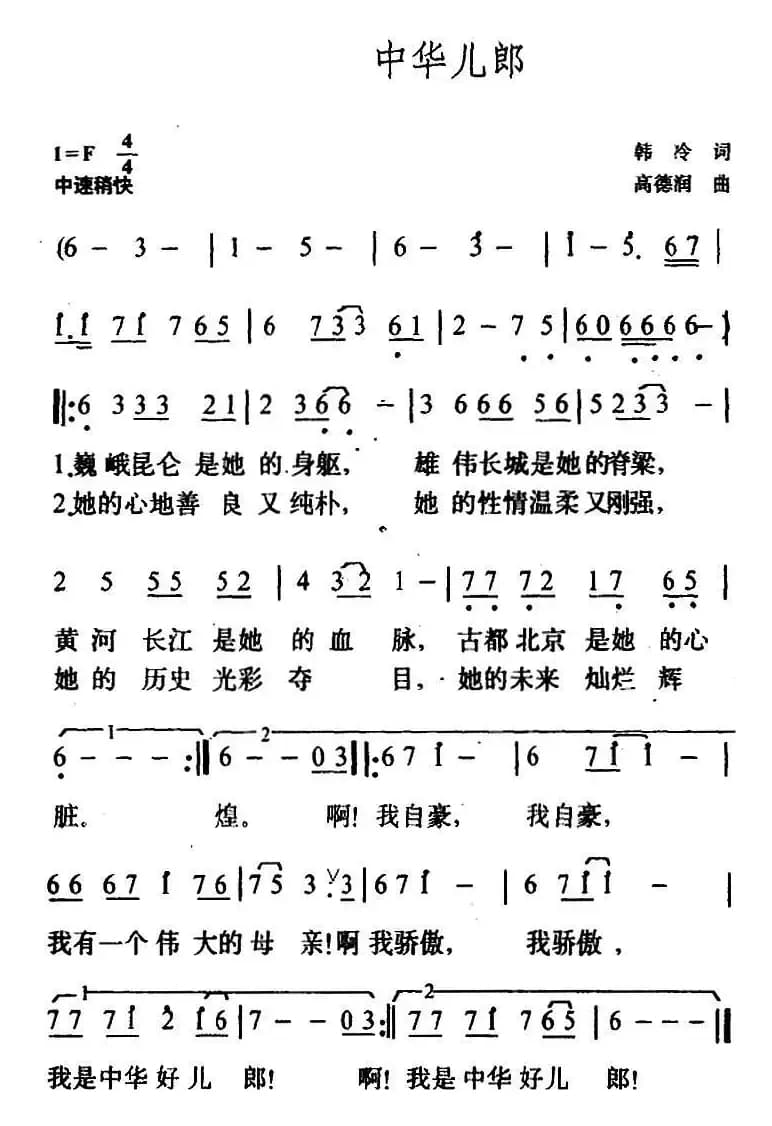 中华儿郎
1=F 4/4 韩冷词
中速稍快 高德润 曲
(6 - 3 - | 1 - 5 - | 6 - 3̇ - | 1̇ - 5. 67 |
1̇. 1̇ 71̇ 7 65 | 6 733 61 | 2 - 7 5 | 60 6666 6 - )
‖: 6 3 33 21 | 2 366 - | 3 666 56 | 5233 - |
1.巍峨昆仑 是她 的 身躯, 雄 伟长城是她的脊梁,
2.她的心地善 良 又 纯朴, 她 的性情温柔又刚强,
2 5 55 52 | 4 32 1 - | 77 72 17 65 |
黄 河 长江 是她 的 血 脉, 古都 北京 是她 的心
她 的 历史 光彩 夺 目, 她的未来 灿烂 辉
1 2
6 - - - :‖ 6 - - 03 ‖: 67 1̇ - | 6 71̇ 1̇ - |
脏。 煌。 啊! 我自豪, 我自豪,
66 67 1̇ 76 | 75 3 3.3 | 67 1̇ - | 6 71̇1̇ - |
我有一个 伟 大的 母 亲!啊 我骄傲, 我骄傲,
1 2
77 71̇ 2̇ 1̇6 | 7 - - 03 :‖ 77 71̇ 7 65 | 6 - - - ‖
我是中华 好 儿 郎! 啊! 我是中华 好儿 郎!